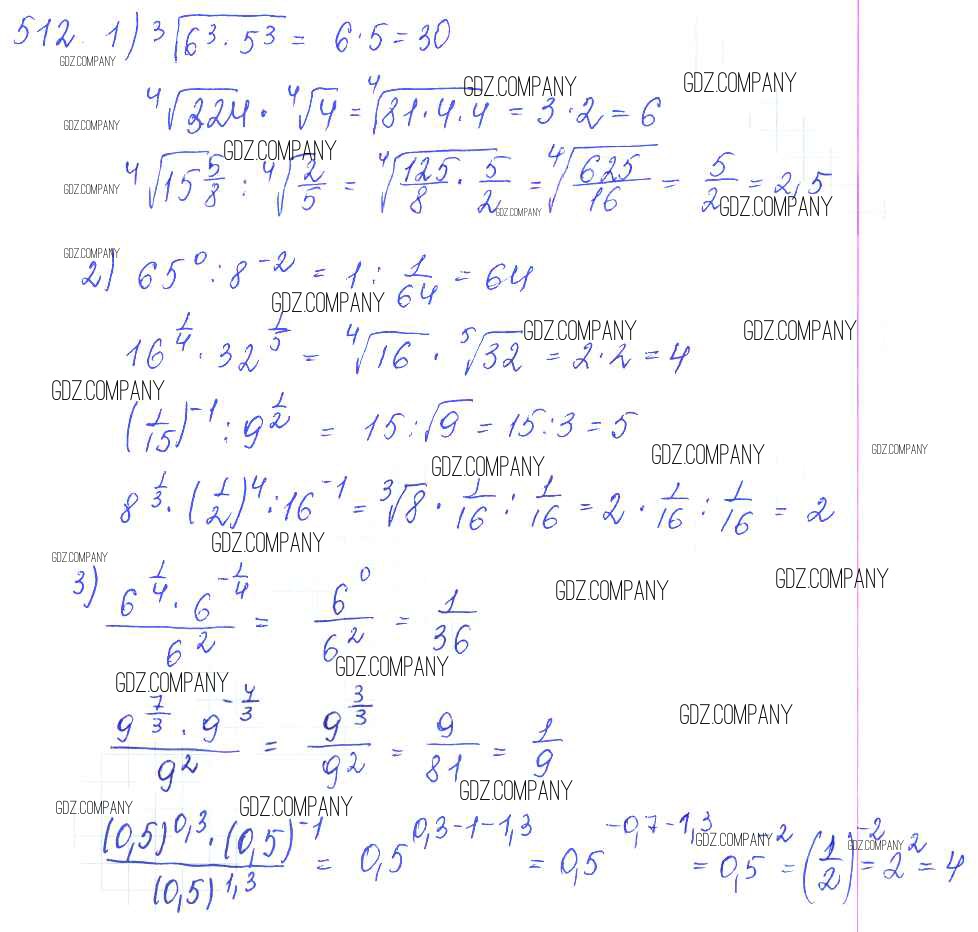 512. 1) ³√(6³·5³) = 6·5 = 30
GDZ.COMPANY
GDZ.COMPANY GDZ.COMPANY
⁴√324 · ⁴√4 = ⁴√(81·4·4) = 3·2 = 6
GDZ.COMPANY
GDZ.COMPANY
⁴√(15 5/8) : ⁴√(2/5) = ⁴√(125/8 · 5/2) = ⁴√(625/16) = 5/2 = 2,5
GDZ.COMPANY GDZ.COMPANY GDZ.COMPANY
GDZ.COMPANY
2) 65⁰ : 8⁻² = 1 : 1/64 = 64
GDZ.COMPANY
GDZ.COMPANY GDZ.COMPANY
16^(1/4) · 32^(1/5) = ⁴√16 · ⁵√32 = 2·2 = 4
GDZ.COMPANY
(1/15)⁻¹ : 9^(1/2) = 15 : √9 = 15 : 3 = 5
GDZ.COMPANY GDZ.COMPANY GDZ.COMPANY
8^(1/3) · (1/2)⁴ : 16⁻¹ = ³√8 · 1/16 : 1/16 = 2 · 1/16 : 1/16 = 2
GDZ.COMPANY
GDZ.COMPANY GDZ.COMPANY GDZ.COMPANY
3) (6^(1/4) · 6^(-1/4))/6² = 6⁰/6² = 1/36
GDZ.COMPANY GDZ.COMPANY
GDZ.COMPANY
(9^(7/3) · 9^(-4/3))/9² = 9^(3/3)/9² = 9/81 = 1/9
GDZ.COMPANY GDZ.COMPANY GDZ.COMPANY
((0,5)^(0,3) · (0,5)⁻¹)/(0,5)^(1,3) = 0,5^(0,3-1-1,3) = 0,5^(-0,7-1,3) = 0,5⁻² = (1/2)⁻² = 2² = 4
GDZ.COMPANY GDZ.COMPANY